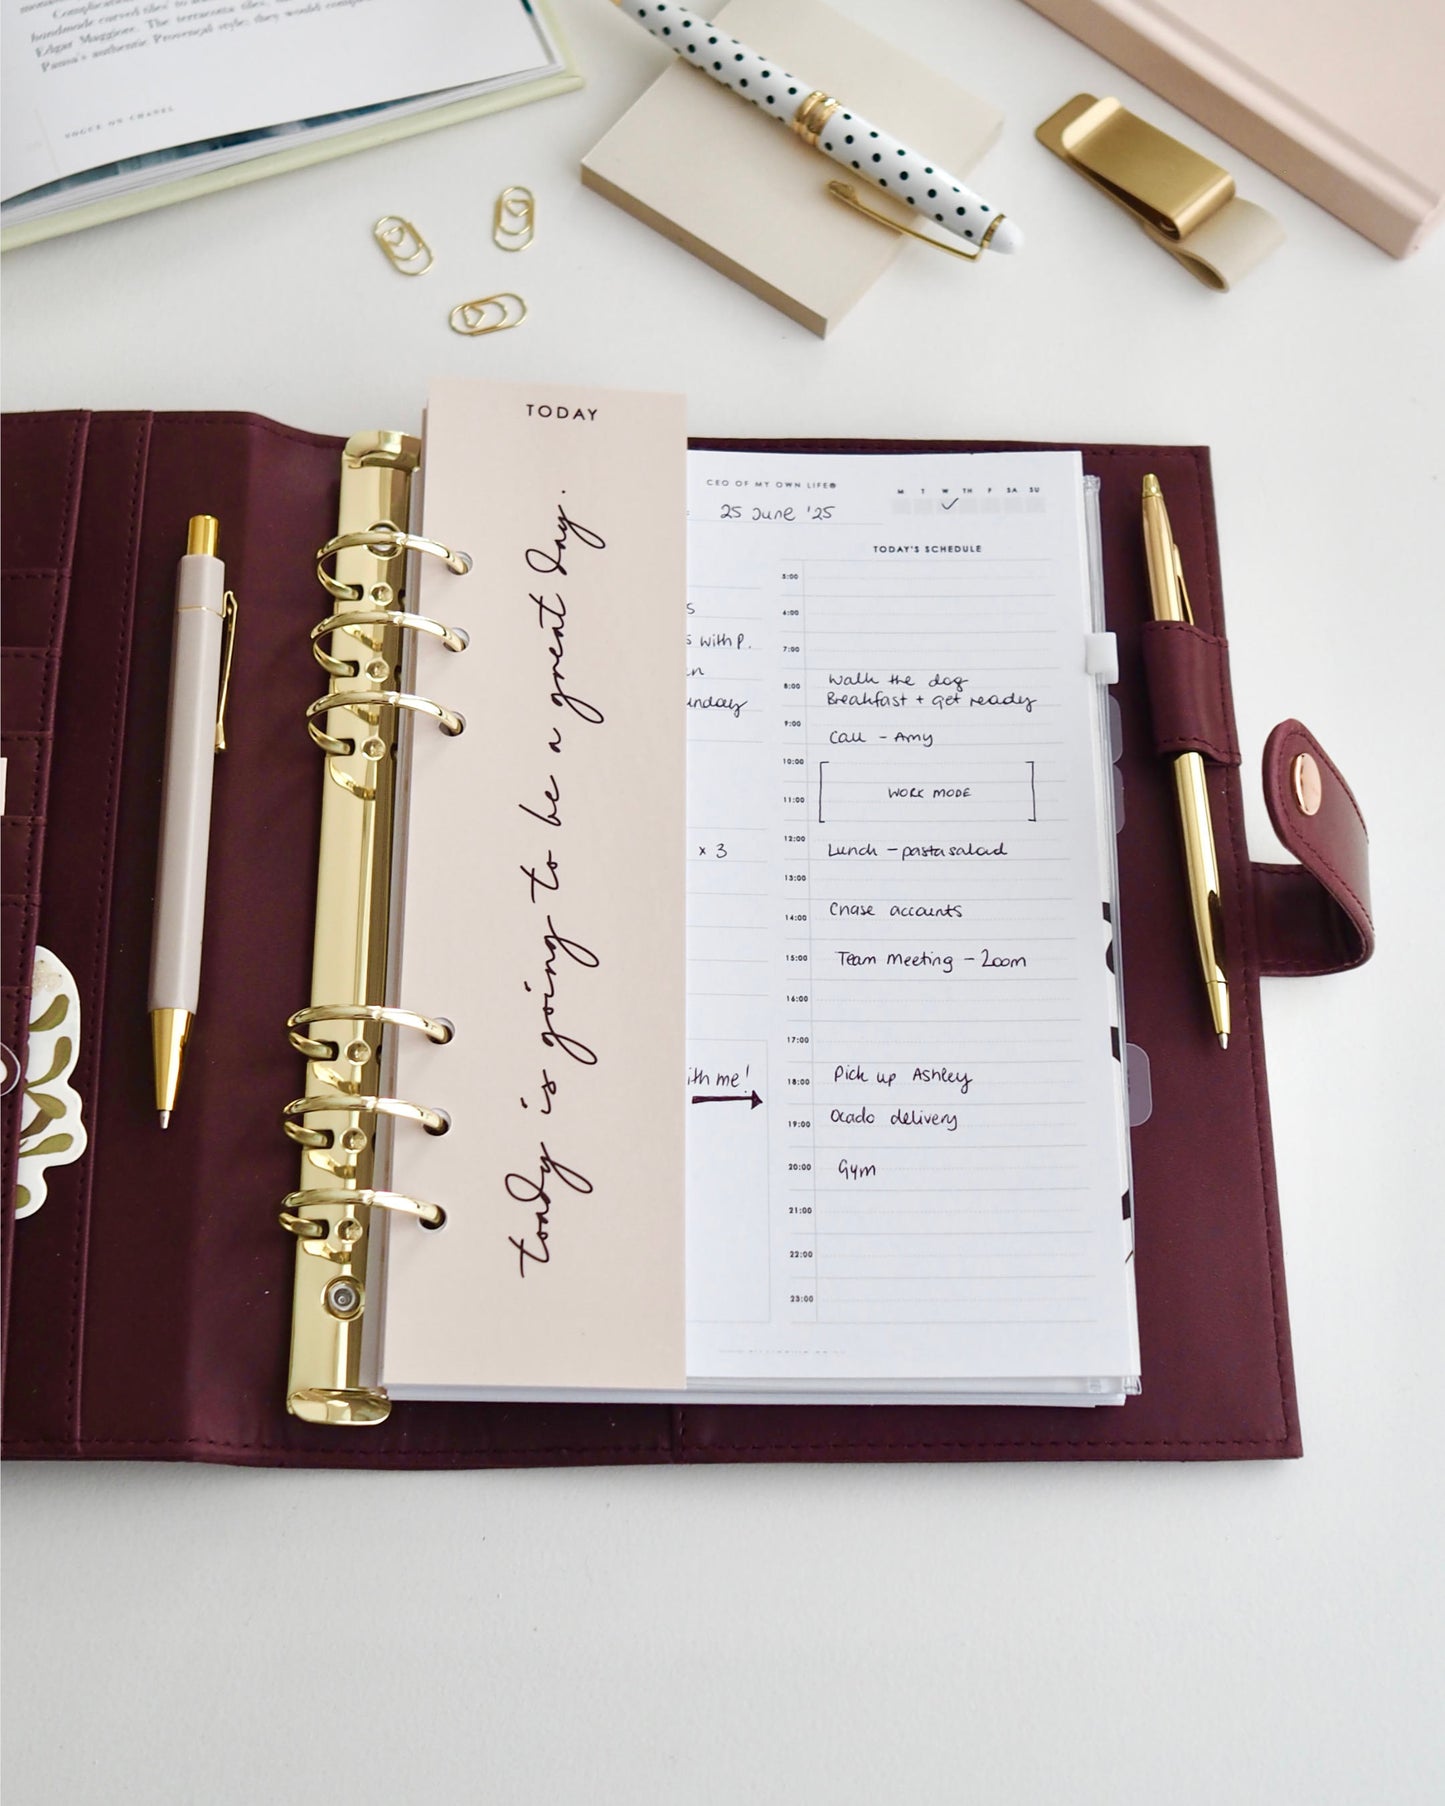 Complication
handmade carved tiles to
Edgar Maggiore. The terracotta tiles,
Parma's authentic Provençal style; they would
VOGUE ON CHANEL
TODAY
today is going to be a great day.
CEO OF MY OWN LIFE®
M T W TH F SA SU
25 June '25
TODAY'S SCHEDULE
5:00
6:00
7:00
8:00 Walk the dog
Breakfast + get ready
9:00
Call - Amy
10:00
WORK MODE
11:00
12:00 Lunch - pasta salad
13:00
14:00 Chase accounts
15:00 Team meeting - Zoom
16:00
17:00
18:00 Pick up Ashley
19:00 Ocado delivery
20:00 Gym
21:00
22:00
23:00
s
s with P.
en
unday
x 3
ith me!